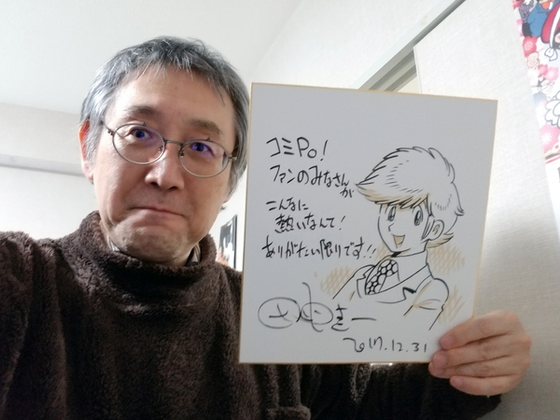 コミPo!
ファンのみなさんが
こんなに
熱いなんて!
ありがたい限りです!!
2017.12.31